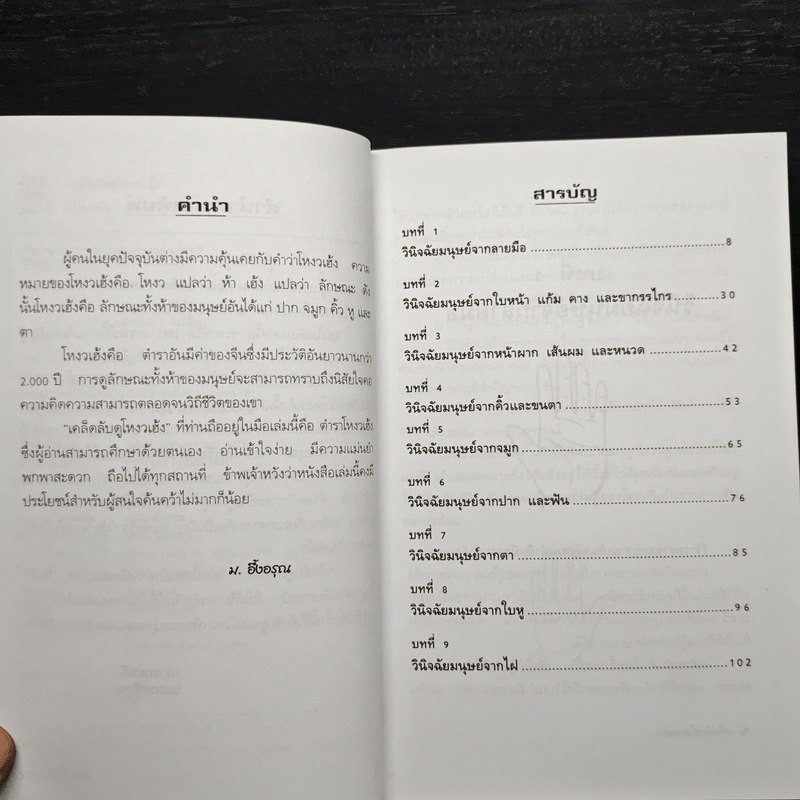 คำนำ
ผู้คนในยุคปัจจุบันต่างมีความคุ้นเคยกับคำว่าโหงวเฮ้ง ความ
หมายของโหงวเฮ้งคือ โหงว แปลว่า ห้า เฮ้ง แปลว่า ลักษณะ ดัง
นั้นโหงวเฮ้งคือ ลักษณะทั้งห้าของมนุษย์อันได้แก่ ปาก จมูก คิ้ว หู และ
ตา
โหงวเฮ้งคือ ตำราอันมีค่าของจีนซึ่งมีประวัติอันยาวนานกว่า
2.000 ปี การดูลักษณะทั้งห้าของมนุษย์จะสามารถทราบถึงนิสัยใจคอ
ความคิดความสามารถตลอดจนวิถีชีวิตของเขา
"เคล็ดลับดูโหงวเฮ้ง" ที่ท่านถืออยู่ในมือเล่มนี้คือ ตำราโหงวเฮ้ง
ซึ่งผู้อ่านสามารถศึกษาด้วยตนเอง อ่านเข้าใจง่าย มีความแม่นยำ
พกพาสะดวก ถือไปได้ทุกสถานที่ ข้าพเจ้าหวังว่าหนังสือเล่มนี้คงมี
ประโยชน์สำหรับผู้สนใจค้นคว้าไม่มากก็น้อย
ม. อึ้งอรุณ
สารบัญ
บทที่ 1
วินิจฉัยมนุษย์จากลายมือ ........................................ 8
บทที่ 2
วินิจฉัยมนุษย์จากใบหน้า แก้ม คาง และขากรรไกร ........ 30
บทที่ 3
วินิจฉัยมนุษย์จากหน้าผาก เส้นผม และหนวด ............... 42
บทที่ 4
วินิจฉัยมนุษย์จากคิ้วและขนตา ................................. 53
บทที่ 5
วินิจฉัยมนุษย์จากจมูก ........................................... 65
บทที่ 6
วินิจฉัยมนุษย์จากปาก และฟัน ................................. 76
บทที่ 7
วินิจฉัยมนุษย์จากตา ............................................. 85
บทที่ 8
วินิจฉัยมนุษย์จากใบหู ........................................... 96
บทที่ 9
วินิจฉัยมนุษย์จากไฝ ............................................. 102